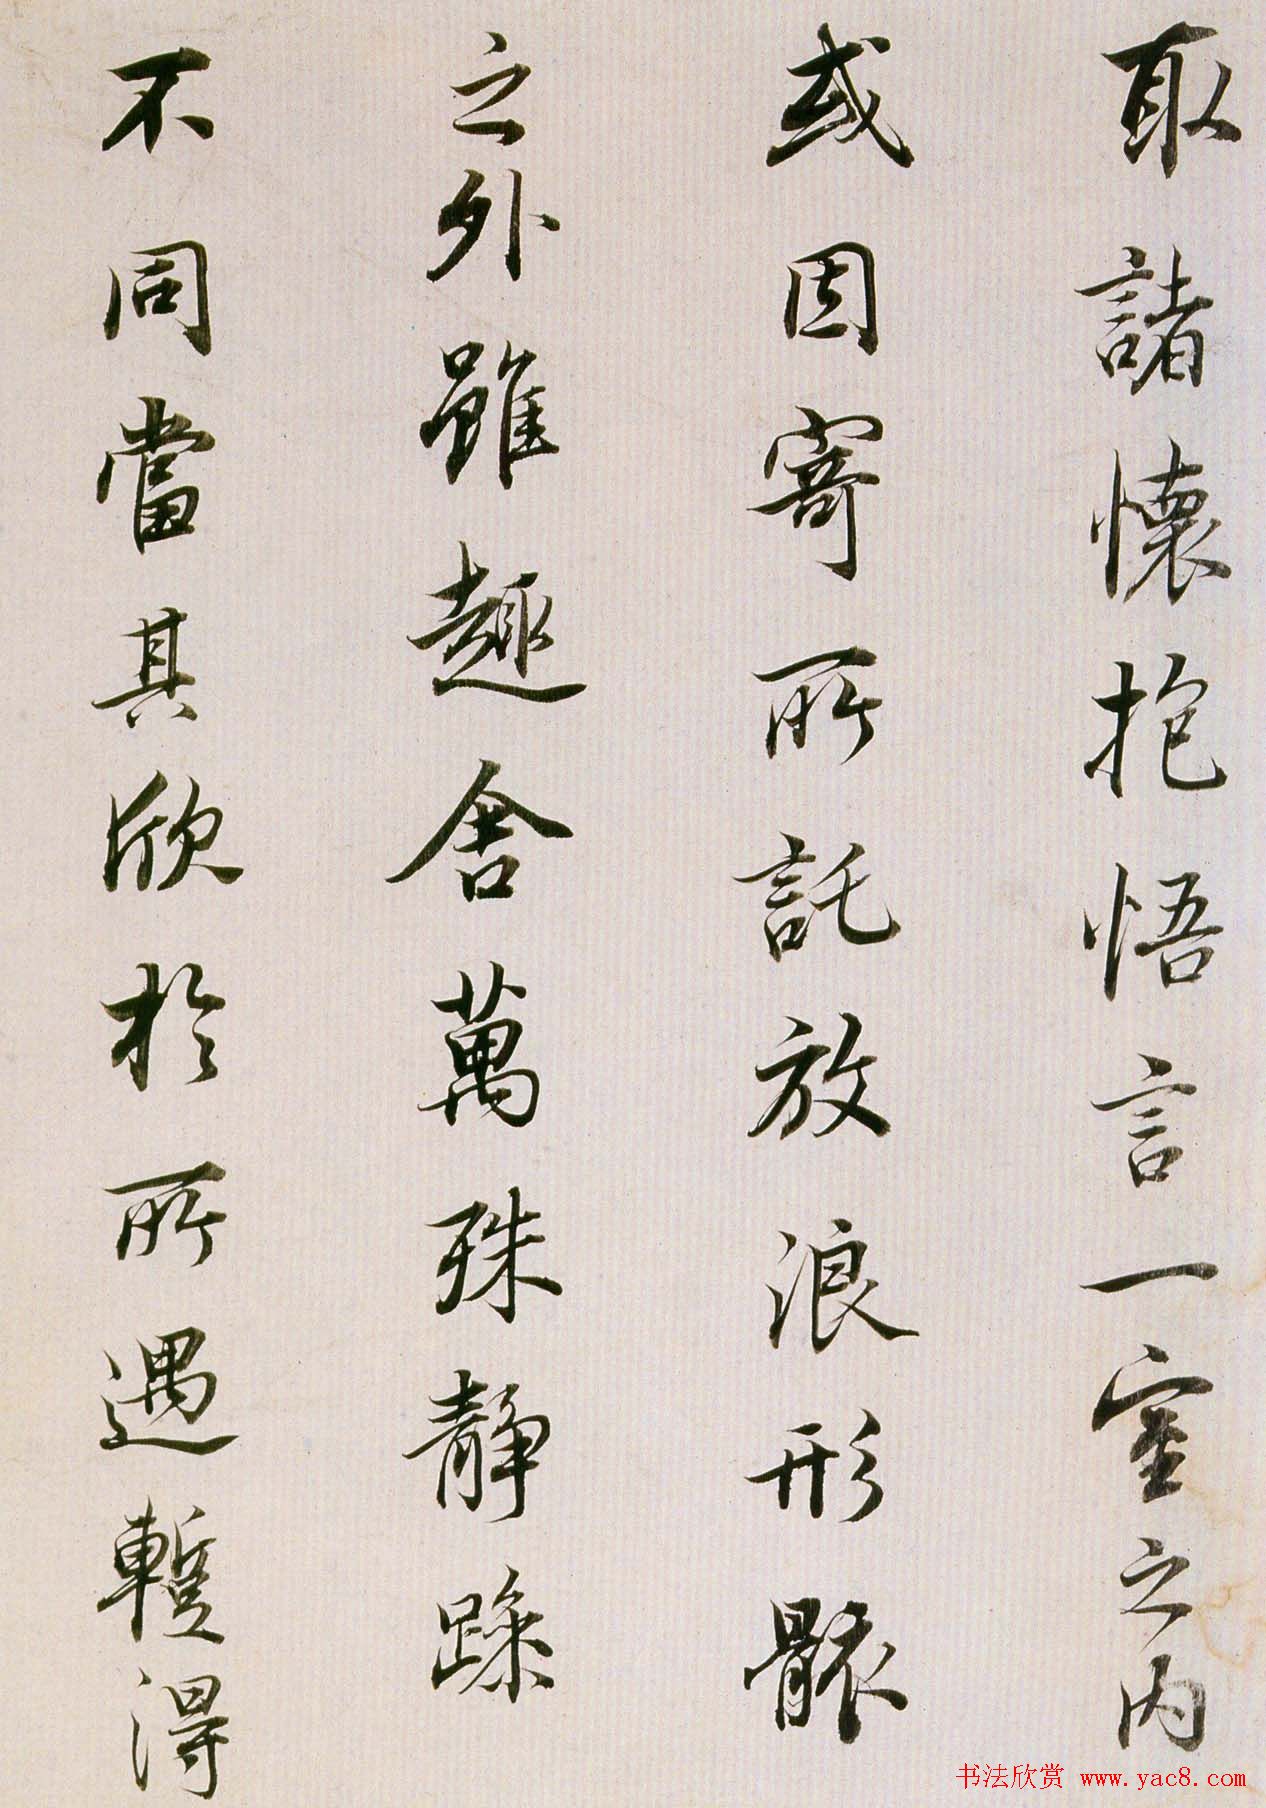 取諸懷抱悟言一室之內
或因寄所託放浪形骸
之外雖趣舍萬殊靜躁
不同當其欣於所遇暫得
书法欣赏 www.yac8.com